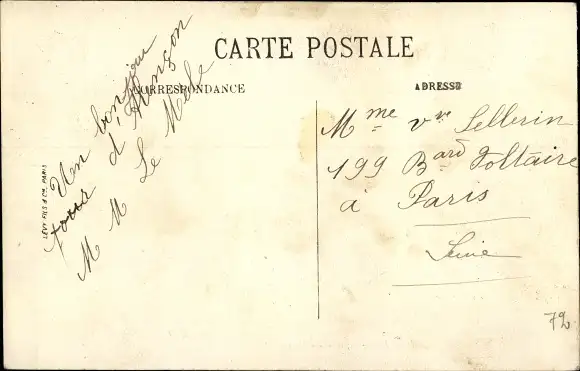 CARTE POSTALE
CORRESPONDANCE
ADRESSE
Un bonjour
tous d'Alençon
M M Le Mele
LÉVY FILS & CIE, PARIS
Mme vve Lellerin
199 Bard Voltaire
à Paris
Seine
72